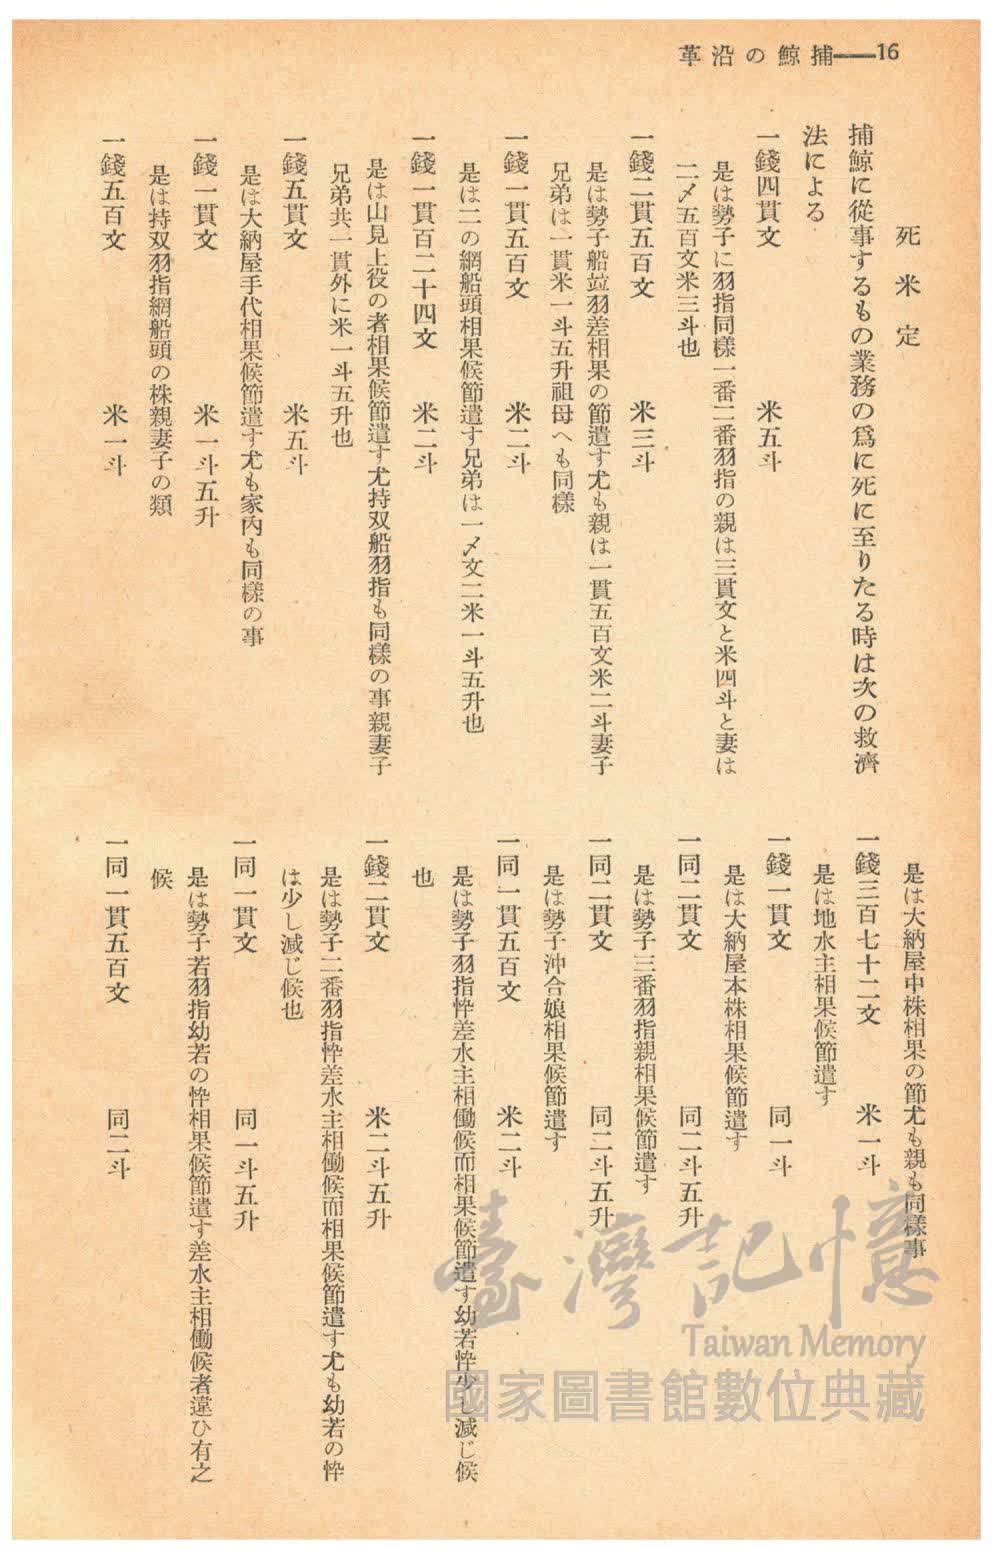 16――捕鯨の沿革
死米定
捕鯨に從事するもの業務の爲に死に至りたる時は次の救濟
法による
一錢四貫文 米五斗
是は勢子に羽指同樣一番二番羽指の親は三貫文と米四斗と妻は
二〆五百文米三斗也
一錢二貫五百文 米三斗
是は勢子船竝羽差相果の節遣す尤も親は一貫五百文米二斗妻子
兄弟は一貫米一斗五升祖母へも同樣
一錢一貫五百文 米二斗
是は二の網船頭相果候節遣す兄弟は一〆文二米一斗五升也
一錢一貫百二十四文 米二斗
是は山見上役の者相果候節遣す尤持双船羽指も同樣の事親妻子
兄弟共一貫外に米一斗五升也
一錢五貫文 米五斗
是は大納屋手代相果候節遣す尤も家內も同樣の事
一錢一貫文 米一斗五升
是は持双羽指網船頭の株親妻子の類
一錢五百文 米一斗
是は大納屋中株相果の節尤も親も同樣事
一錢三百七十二文 米一斗
是は地水主相果候節遣す
一錢一貫文 同一斗
是は大納屋本株相果候節遣す
一同二貫文 同二斗五升
是は勢子三番羽指親相果候節遣す
一同二貫文 同二斗五升
是は勢子沖合娘相果候節遣す
一同一貫五百文 米二斗
是は勢子羽指忰差水主相働候而相果候節遣す幼若忰少し減じ候
也
一錢二貫文 米二斗五升
是は勢子二番羽指忰差水主相働候而相果候節遣す尤も幼若の忰
は少し減じ候也
一同一貫文 同一斗五升
是は勢子若羽指幼若の忰相果候節遣す差水主相働候者違ひ有之
候
一同一貫五百文 同二斗
臺灣記憶
Taiwan Memory
國家圖書館數位典藏